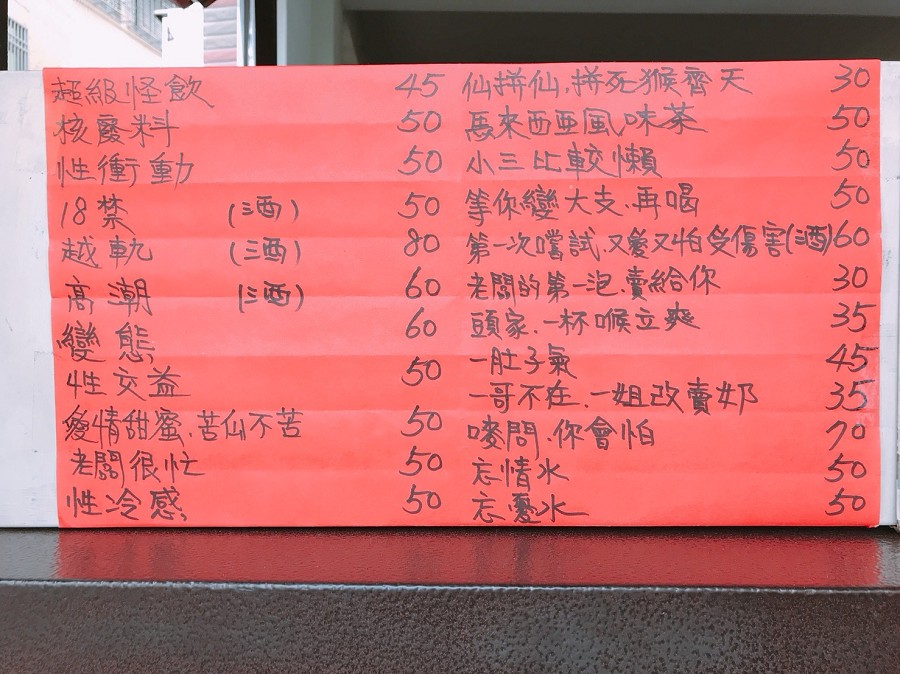 超級怪飲 45
核廢料 50
性衝動 50
18禁 (酒) 50
越軌 (酒) 80
高潮 (酒) 60
變態 60
性交益 50
愛情甜蜜、苦仙不苦 50
老闆很忙 50
性冷感 50
仙拼仙、拼死猴齊天 30
馬來西亞風味茶 50
小三比較懶 50
等你變大支、再喝 50
第一次嚐試、又愛又怕受傷害(酒) 60
老闆的第一泡、賣給你 30
頭家、一杯喉立爽 35
一肚子氣 45
一哥不在、一姐改賣奶 35
嘜問、你會怕 70
忘情水 50
忘憂水 50